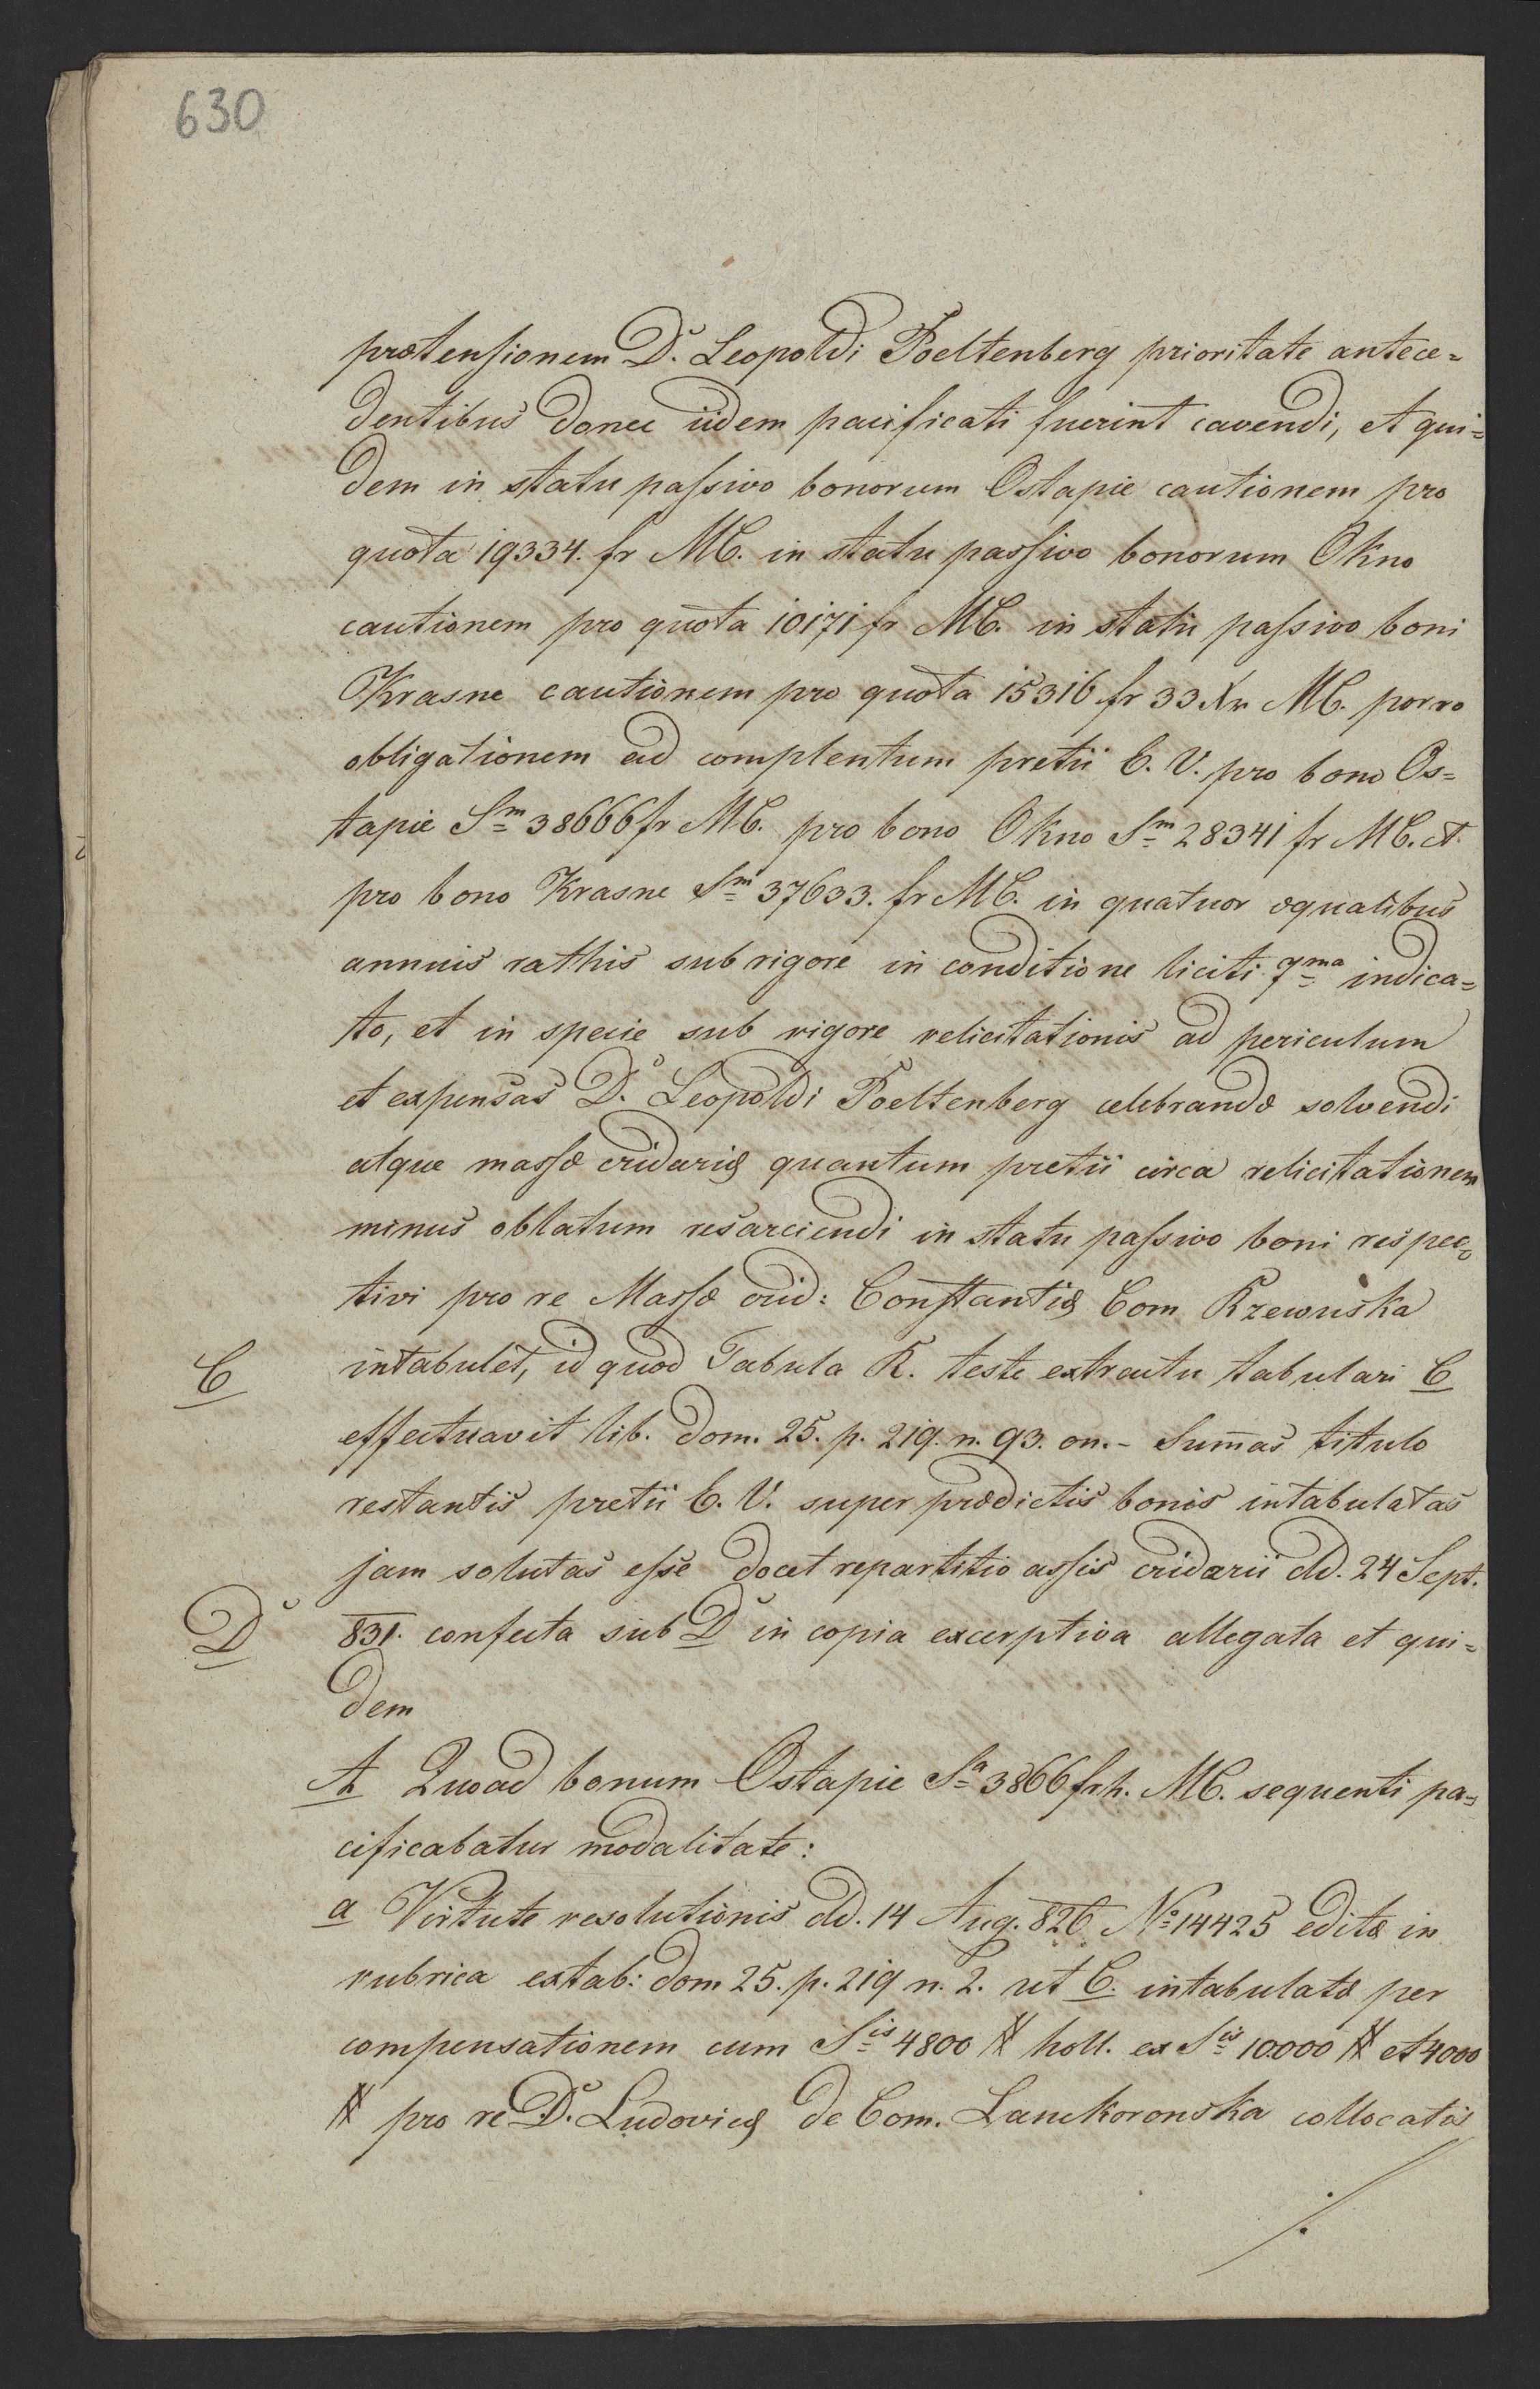 630
prætensionem D. Leopoldi Poeltenberg prioritate antece=
dentibus donec iidem pacificati fuerint cavendi, et qui=
dem in statu passivo bonorum Ostapie cautionem pro
quota 19334. fr MC. in statu passivo bonorum Okno
cautionem pro quota 10171 fr MC. in statu passivo boni
Krasne cautionem pro quota 15316 fr 33 Xr MC. porro
obligationem ad complentum pretii E. V. pro bono Os=
tapie Sm 38666 fr MC. pro bono Okno Sm 28341 fr MC. et
pro bono Krasne Sm 37633. fr MC. in quatuor æqualibus
annuis rathis sub rigore in conditione liciti 7ma indica=
to, et in specie sub rigore relicitationis ad periculum
et expensas D. Leopoldi Poeltenberg celebrandæ solvendi
atque massæ cridariæ quantum pretii circa relicitationem
minus oblatum resarciendi in statu passivo boni respec=
tivi pro re Massæ crid: Constantiæ Com Rzewuska
C intabulet, id quod Tabula R. teste extractu tabulari C
effectuavit lib. dom. 25. p. 219. n. 93. on. - Sum̄as titulo
restantis pretii E. V. super prædictis bonis intabulatas
jam solutas esse docet repartitio assis cridarii dd. 24 Sept.
D 831. confecta sub D in copia excerptiva allegata et qui=
dem
A Quoad bonum Ostapie Sa 3866 frh. MC. sequenti pa=
cificabatur modalitate:
a Virtute resolutionis dd. 14 Aug. 826 No 14425 editæ in
rubrica extab: dom 25. p. 219 n. 2. ut C. intabulatæ per
compensationem cum Sis 4800 # holl. ex Sis 10.000 # et 4000
# pro re D. Ludovicæ de Com. Lanckoronska collocatis
./.